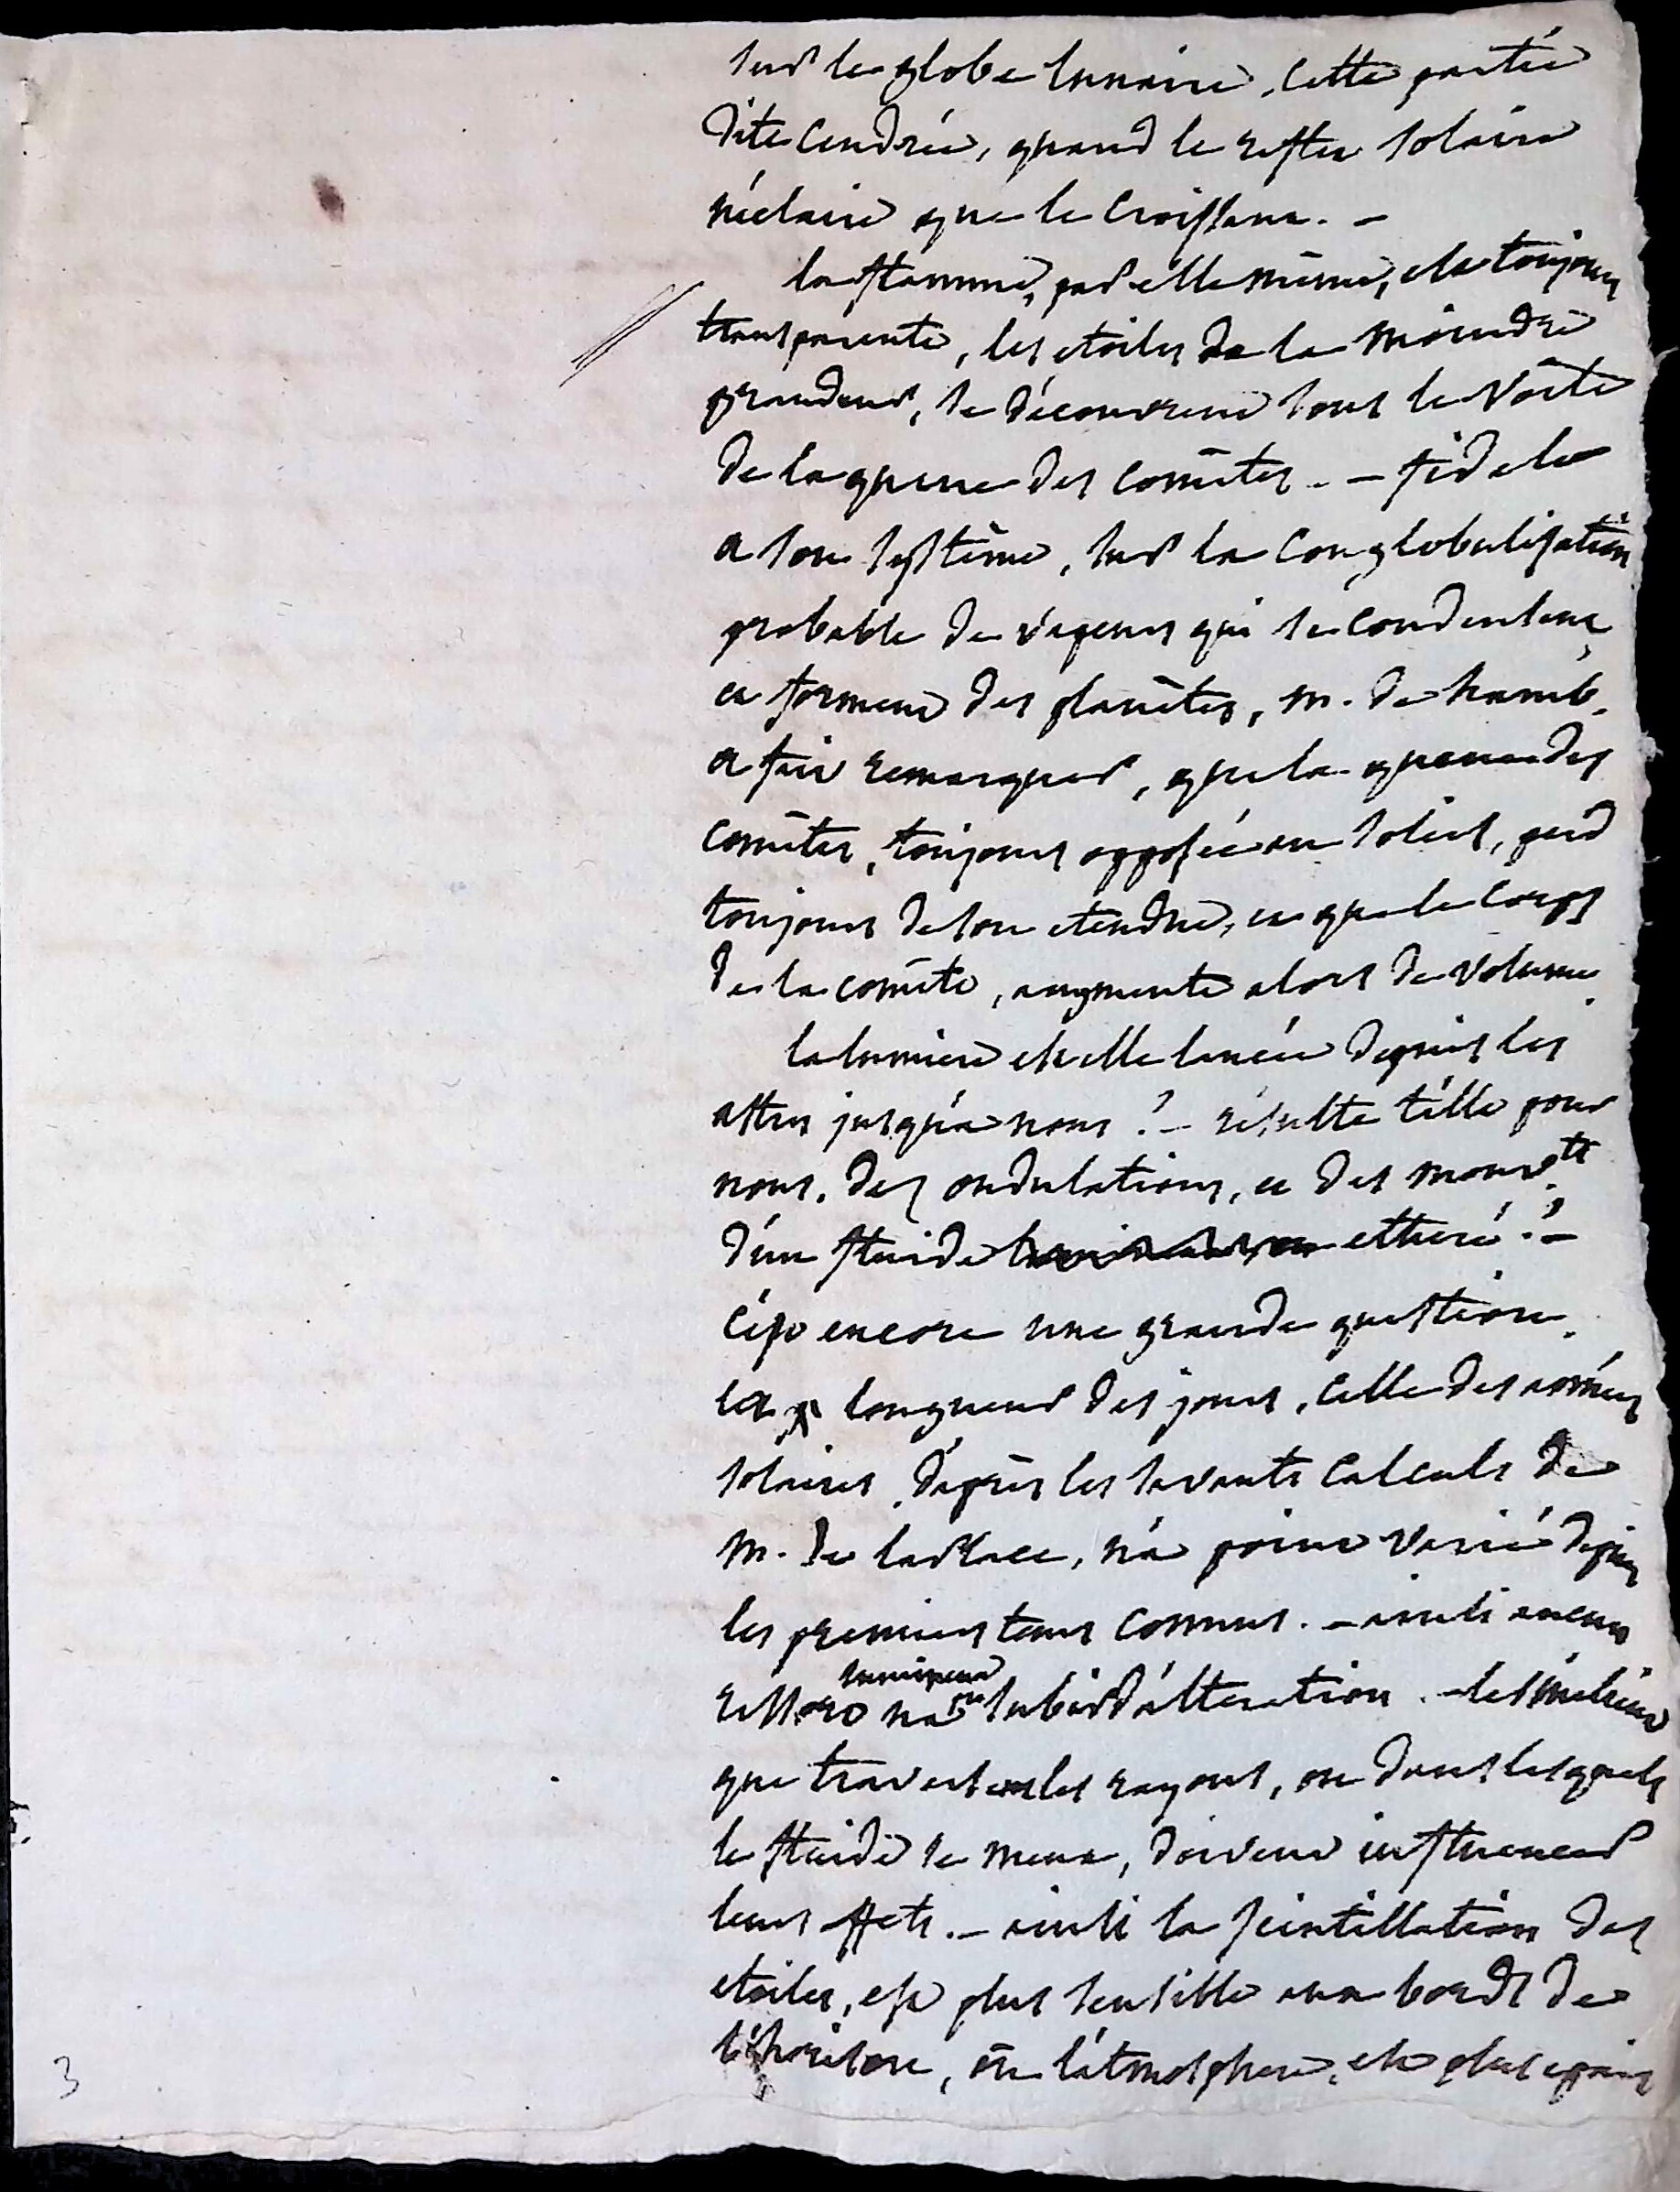 sur le globe lunaire, cette partie
dite cendrée, quand le reflet solaire
n'eclaire que le croissant. -
la flamme, par elle même, est toujours
transparente, les etoiles de la moindre
grandeur, se découvrent sous le voile
de la queue des comètes. - fidele
a son système, sur la conglobulisation
probable de vapeurs qui se condensent,
et forment des planètes, m. de humb.
a fait remarquer, que la queue des
comètes, toujours opposée au soleil, perd
toujours de son etendue, et que le corps
de la comète, augmente alors de volume.
la lumiere est elle lancée depuis les
astres jusqu'a nous ? - résulte t'elle pour
nous, des ondulations, et des mouv.ts
d'un fluide etheré ? -
c'est encore une grande question.
la longueur des jours, celle des années
solaires, d'après les savants calculs de
m. de laplace, n'a point varié depuis
les premiers tems connus. - ainsi aucun
lumineux
n'a subi d'altération. - les milieux
que traversent les rayons, ou dans lesquels
le fluide se meut, doivent influencer
leurs effets. - ainsi la scintillation des
etoiles, est plus sensible aux bords de
l'horison, où l'atmosphere, est plus epais
3